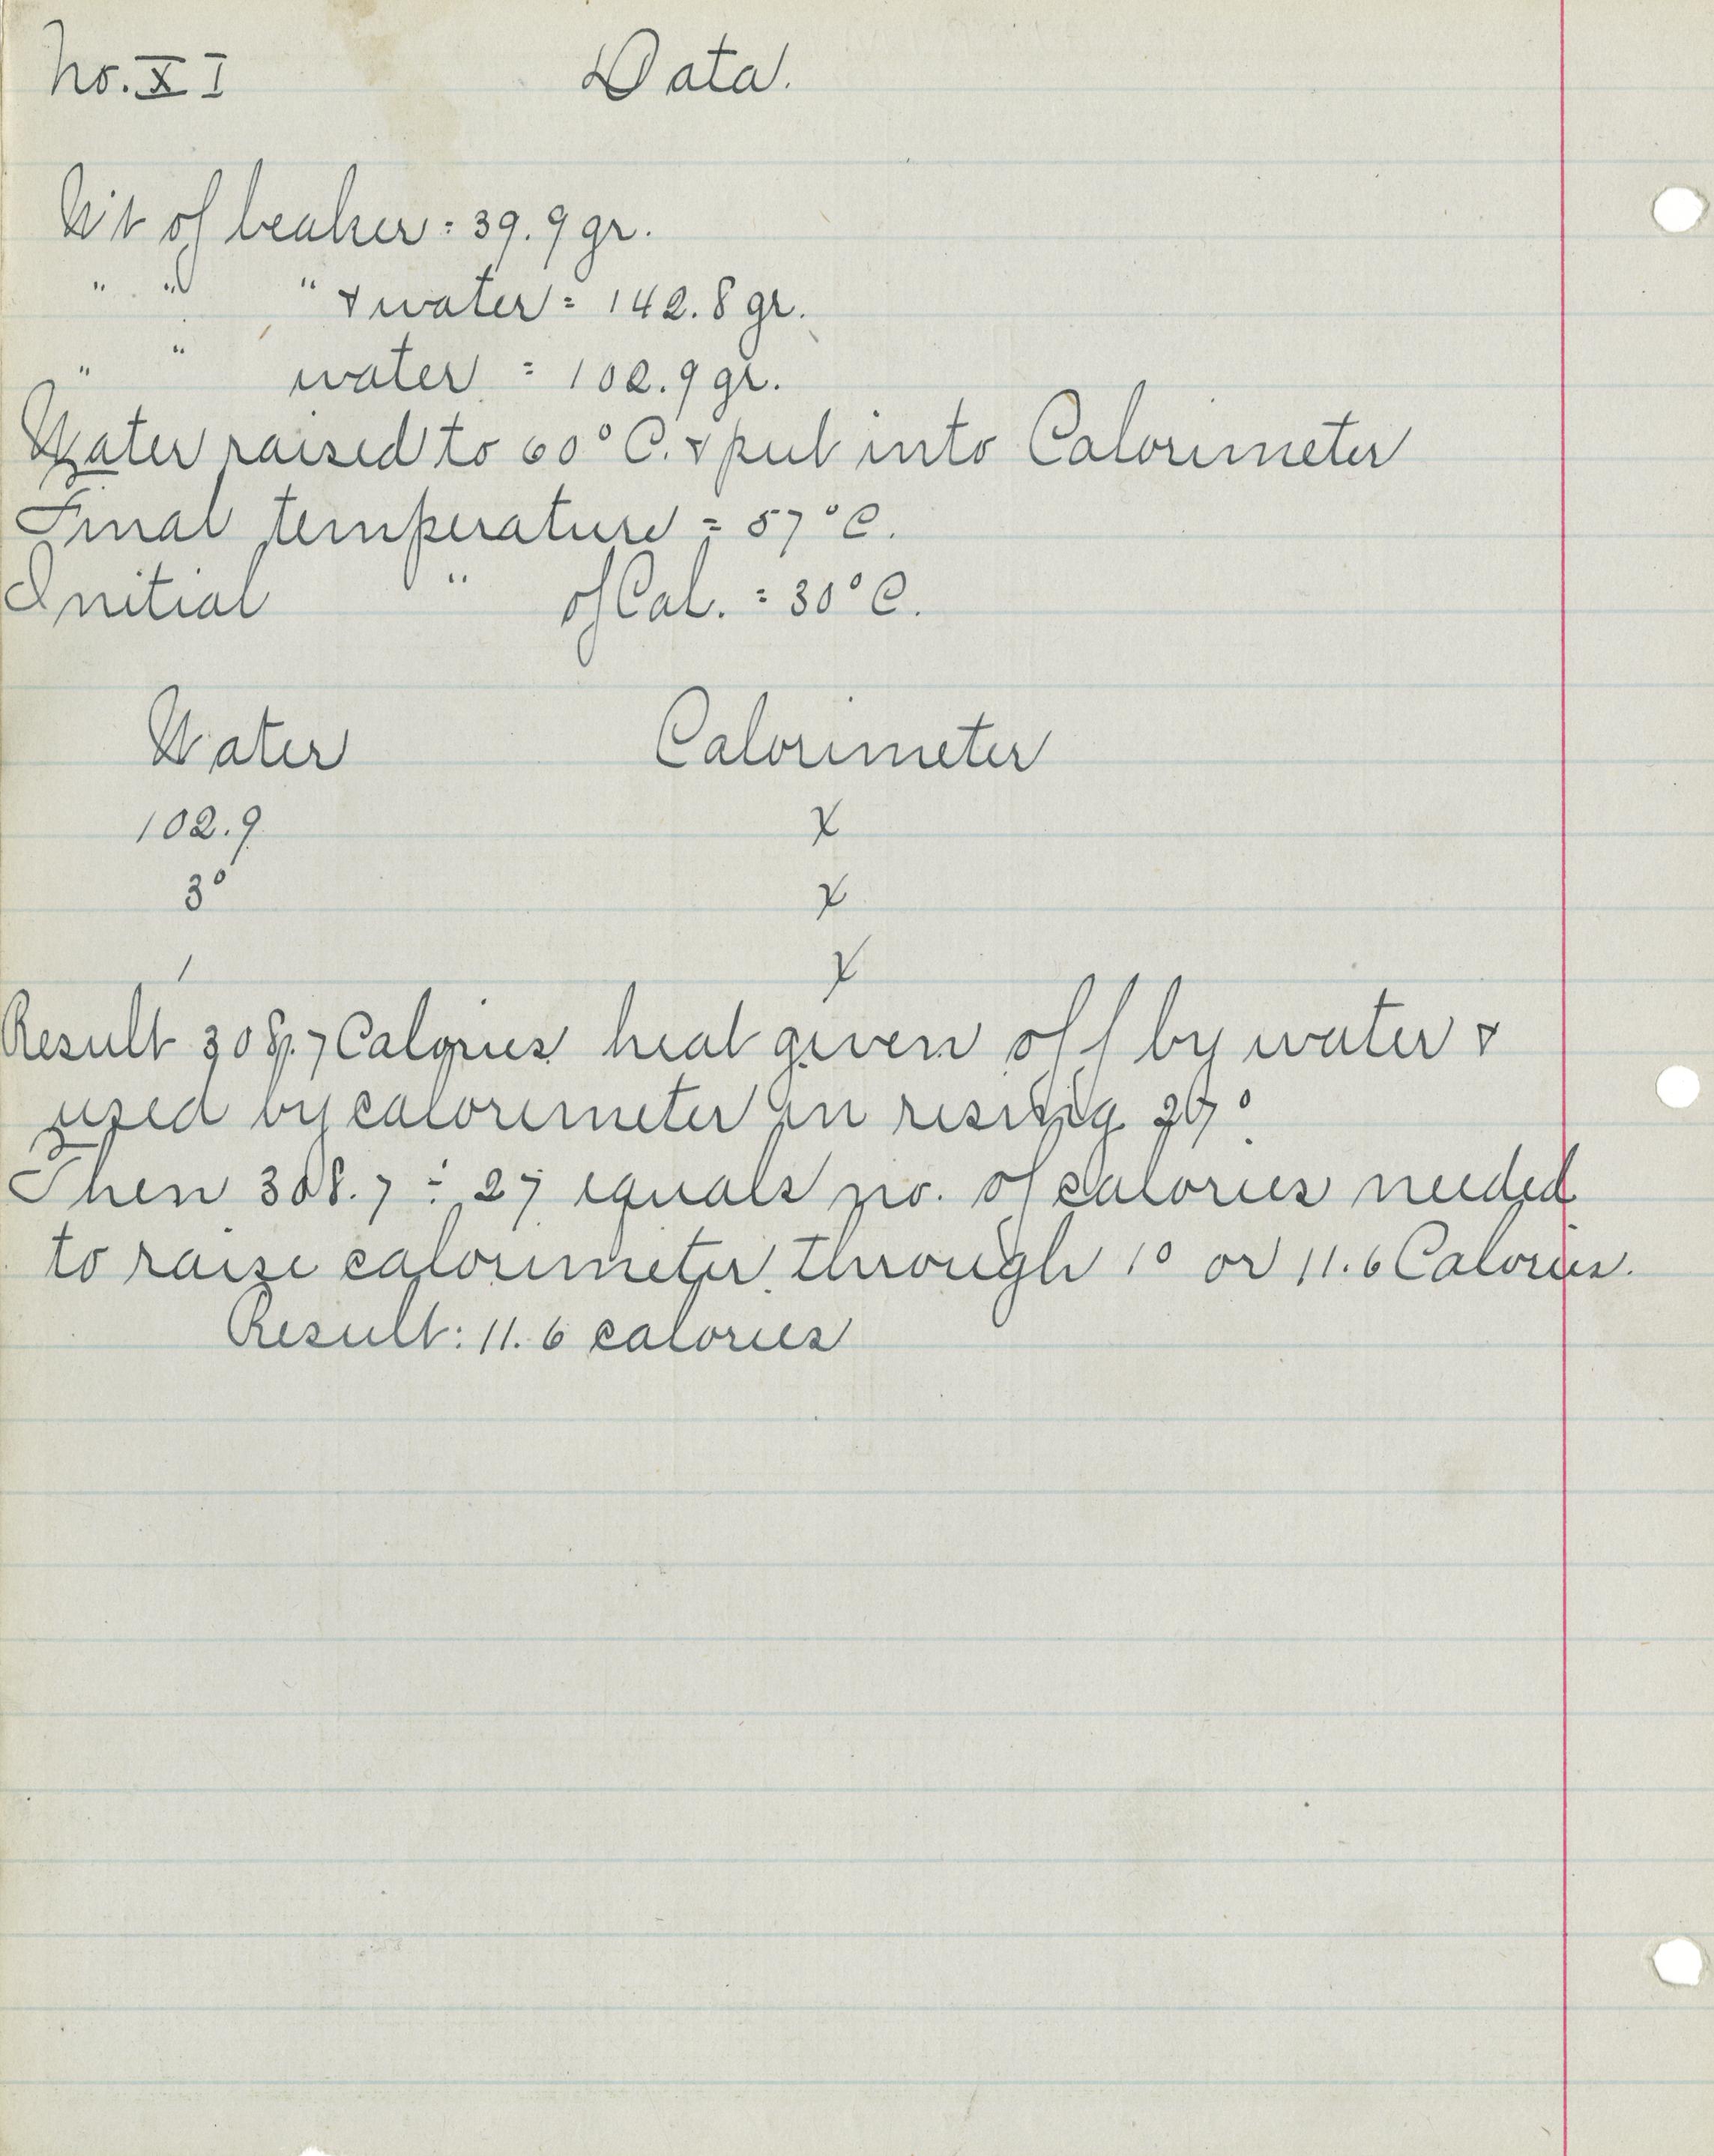 No. XI Data.
Wt of beaker = 39.9 gr.
" " " & water = 142.8 gr.
" " water = 102.9 gr.
Water raised to 60° C. & put into Calorimeter
Final temperature = 57° C.
Initial " of Cal. = 30° C.
Water Calorimeter
102.9 x
3° x
1 x
Result 308.7 Calories heat given off by water &
used by calorimeter in rising 27°.
Then 308.7 ÷ 27 equals no. of calories needed
to raise calorimeter through 1° or 11.6 Calories.
Result: 11.6 calories